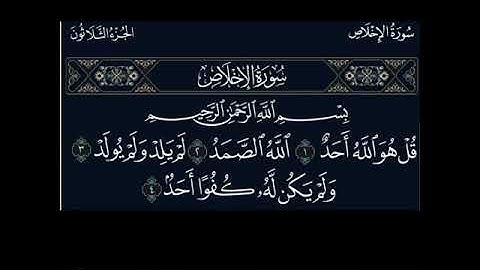 سُورَةُ الإِخْلَاصِ
الجُزْءُ الثَّلَاثُونَ
سُورَةُ الإِخْلَاصِ
بِسْمِ اللَّهِ الرَّحْمَٰنِ الرَّحِيمِ
قُلْ هُوَ اللَّهُ أَحَدٌ ١ اللَّهُ الصَّمَدُ ٢ لَمْ يَلِدْ وَلَمْ يُولَدْ ٣
وَلَمْ يَكُن لَّهُۥ كُفُوًا أَحَدٌۢ ٤